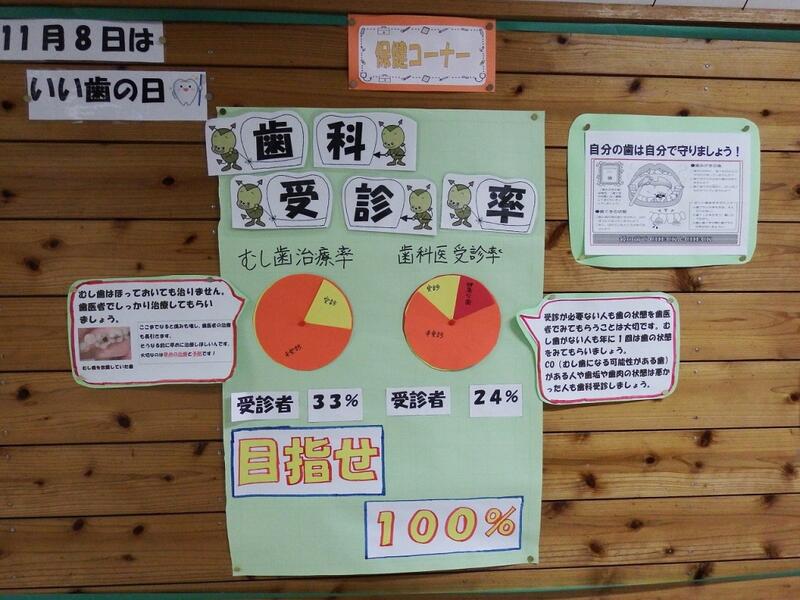 11月8日は
いい歯の日
保健コーナー
歯科
受診率
むし歯治療率
歯科医受診率
受診
未受診
受診
未受診
受診者 33%
受診者 24%
目指せ
100%
むし歯はほっておいても治りません。
歯医者でしっかり治療してもらい
ましょう。
ここまでなると痛みも増し、歯医者の治療
も長引きます。
そうなる前に早めに治療してほしいんです。
大切なのは早めの治療と予防です！
むし歯を放置していた歯
自分の歯は自分で守りましょう！
受診が必要ない人も歯の状態を歯医
者でみてもらうことは大切です。む
し歯がない人も年に１回は歯の状態
をみてもらいましょう。
CO（むし歯になる可能性がある歯）
がある人や歯垢や歯肉の状態は悪か
った人も歯科受診しましょう。